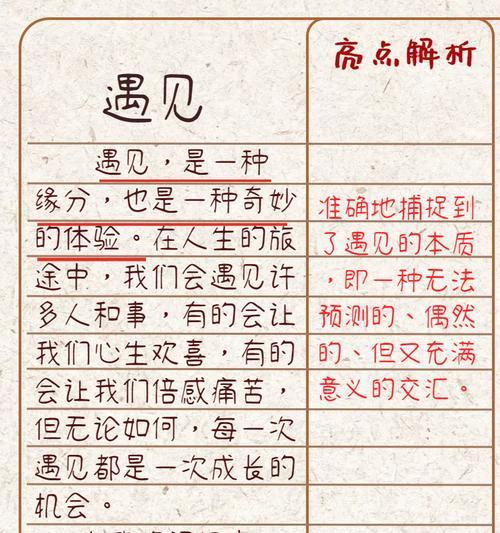 遇见
遇见，是一种
缘分，也是一种奇妙
的体验。在人生的旅
途中，我们会遇见许
多人和事，有的会让
我们心生欢喜，有的
会让我们倍感痛苦，
但无论如何，每一次
遇见都是一次成长的
机会。
亮点解析
准确地捕捉到
了遇见的本质
，即一种无法
预测的、偶然
的、但又充满
意义的交汇。